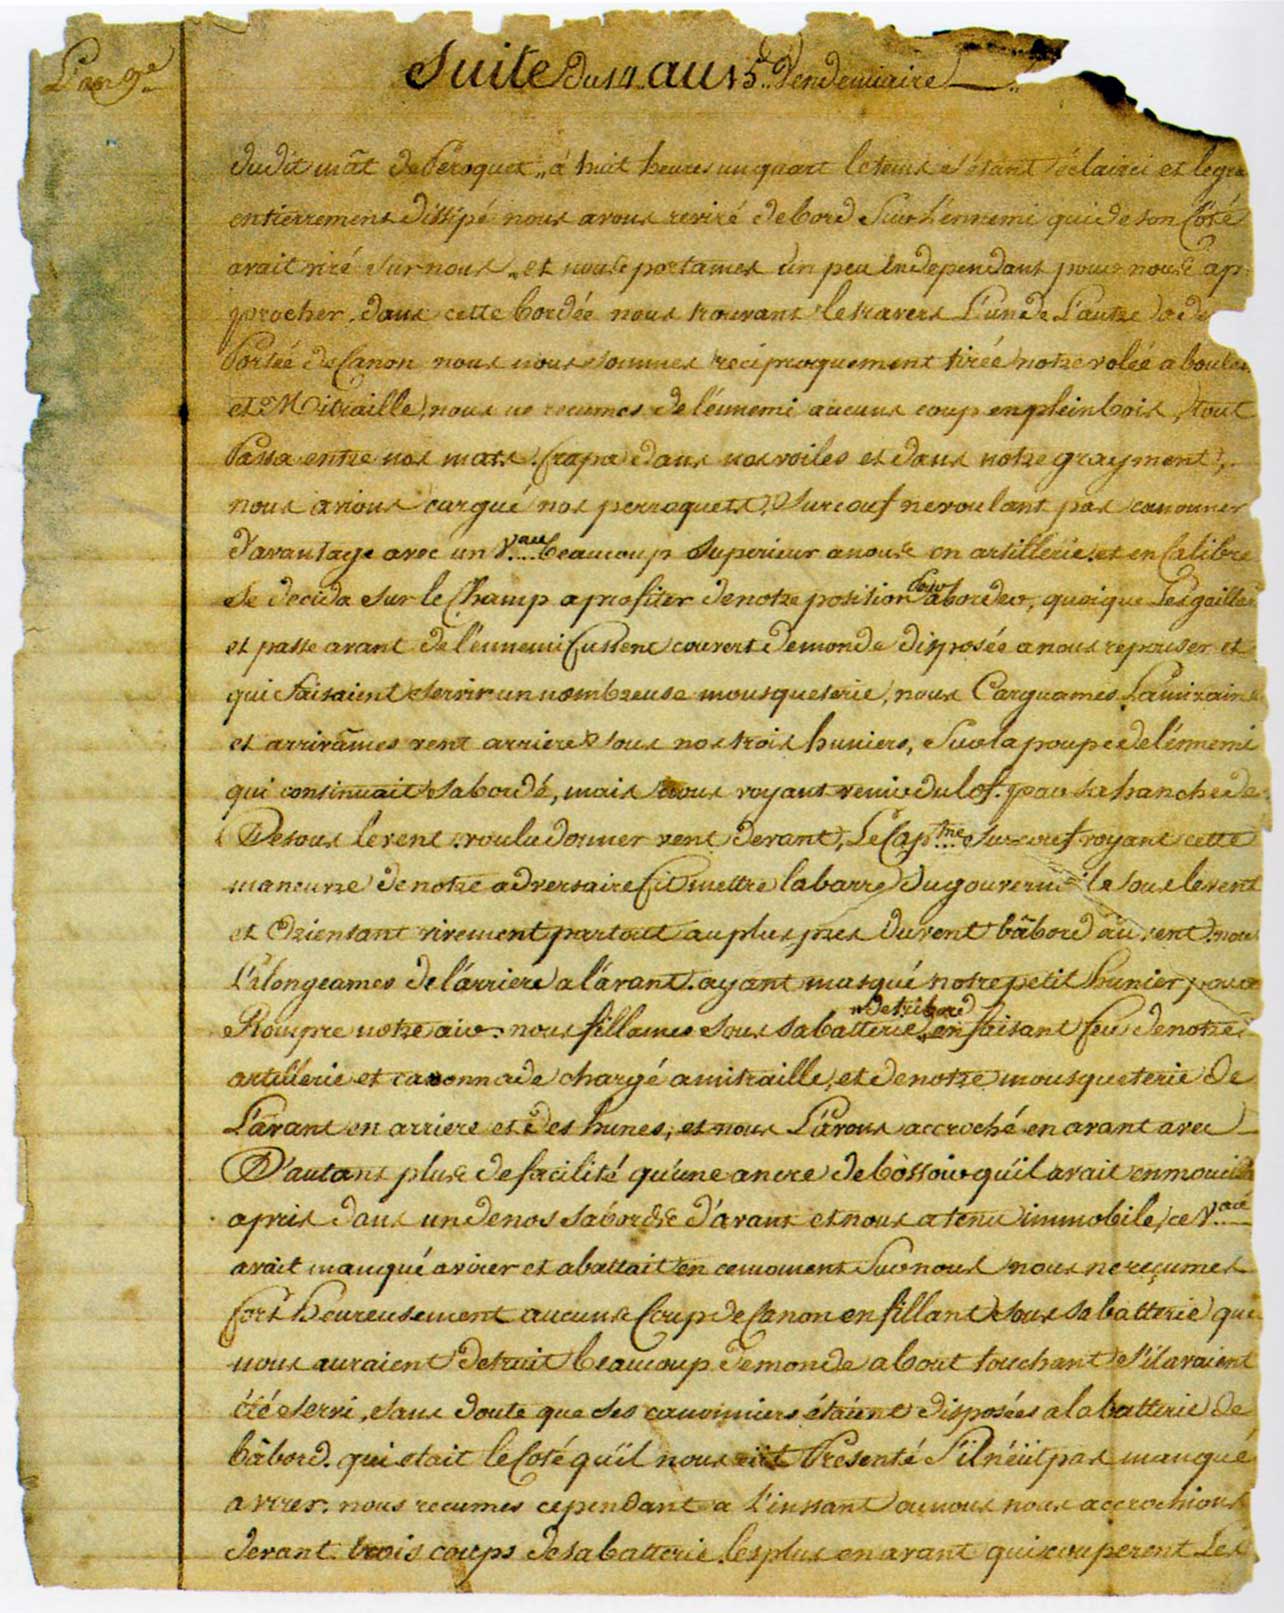 L'an 9e
Suite du 14 au 15 Vendemiaire
dudit mât de Peroquet „ à huit heures un quart le tems s'étant éclairci et le gra
entierrement dissipé nous avons reviré de bord Sur L'énnemi qui de son Côté
avait viré sur nous „ et nous portames un peu independant pour nous ap
procher, dans cette bordée nous trouvant le travers L'un de L'autre a de
Portée de Canon nous nous sommes reciproquement tirée notre volée a boulet
et Mitraille, nous ne recumes de l'énnemi aucuns coup en plein bois, tout
Passa entre nos mats. frapa dans nos voiles et dans notre grayment,
nous avions cargué nos perroquets. Surcouf ne voulant pas canonner
d'avantage avec un V.au beaucoup superieur a nous en artillerie et en Calibre
Se decida sur le Champ a profiter de notre position pour aborder, quoique Les gaillar
et passe avant de l'énnemi fussent couvert de monde disposée a nous repouser et
qui faisaient servir un nombreuse mousqueterie, nous Carguames La mizaine
et arrivâmes vent arriere sous nos trois huniers, Sur la poupe de l'énnemi
qui continuait sa bordé, mais nous voyant venir du lof. par sa hanche de
Desous le vent voulu donner vent devant, Le Cap.tne Surcouf voyant cette
maneuvre de notre adversaire fit mettre la barre du gouvernaile sous le vent
et Orientant vivement partout au plus pres du vent bâbord au vent nous
L'élongeames de l'árriere a l'ávant. ayant masqué notre petit hunier pour
Rompre notre air. nous fillames sous sa batterie de tribord en faisant feu de notre
artillerie et caronnade chargé a mitraille, et de notre mousqueterie de
L'ávant en arriere et des hunes, et nous L'ávons accroché en avant avec
D'autant plus de facilité qu'une ancre de bossoir qu'il avait en mouci
a pris dans un de nos sabords d'avant et nous a tenu immobile, ce V.au
avait manqué a virer et abattait en ce moment Sur nous nous ne reçumes
fort heureusement aucuns Coup de Canon en fillant sous sa batterie que
nous auraient detruit beaucoup de monde a bout touchant S'il avaient
été servi, sans doute que ses canonniers étaient disposées a la batterie de
bâbord. qui etait le Coté qu'il nous eüt Presenté S'il n'eüt pas manqué
a virer. nous recumes cependant a L'instant ou nous nous accrochions
devant trois coups de sa batterie les plus en avant qui couperent Les